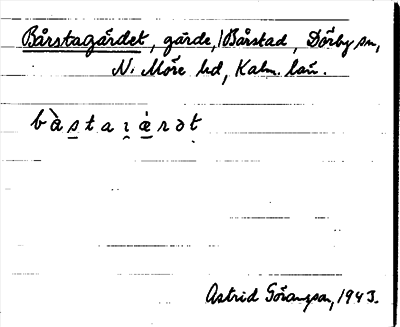 Bårstagärdet, gärde, i Bårstad, Dörby sn,
N. Möre hd, Kalm. län.
bàs̲taı̯ȧ̲rət
Astrid Göransson, 1943.